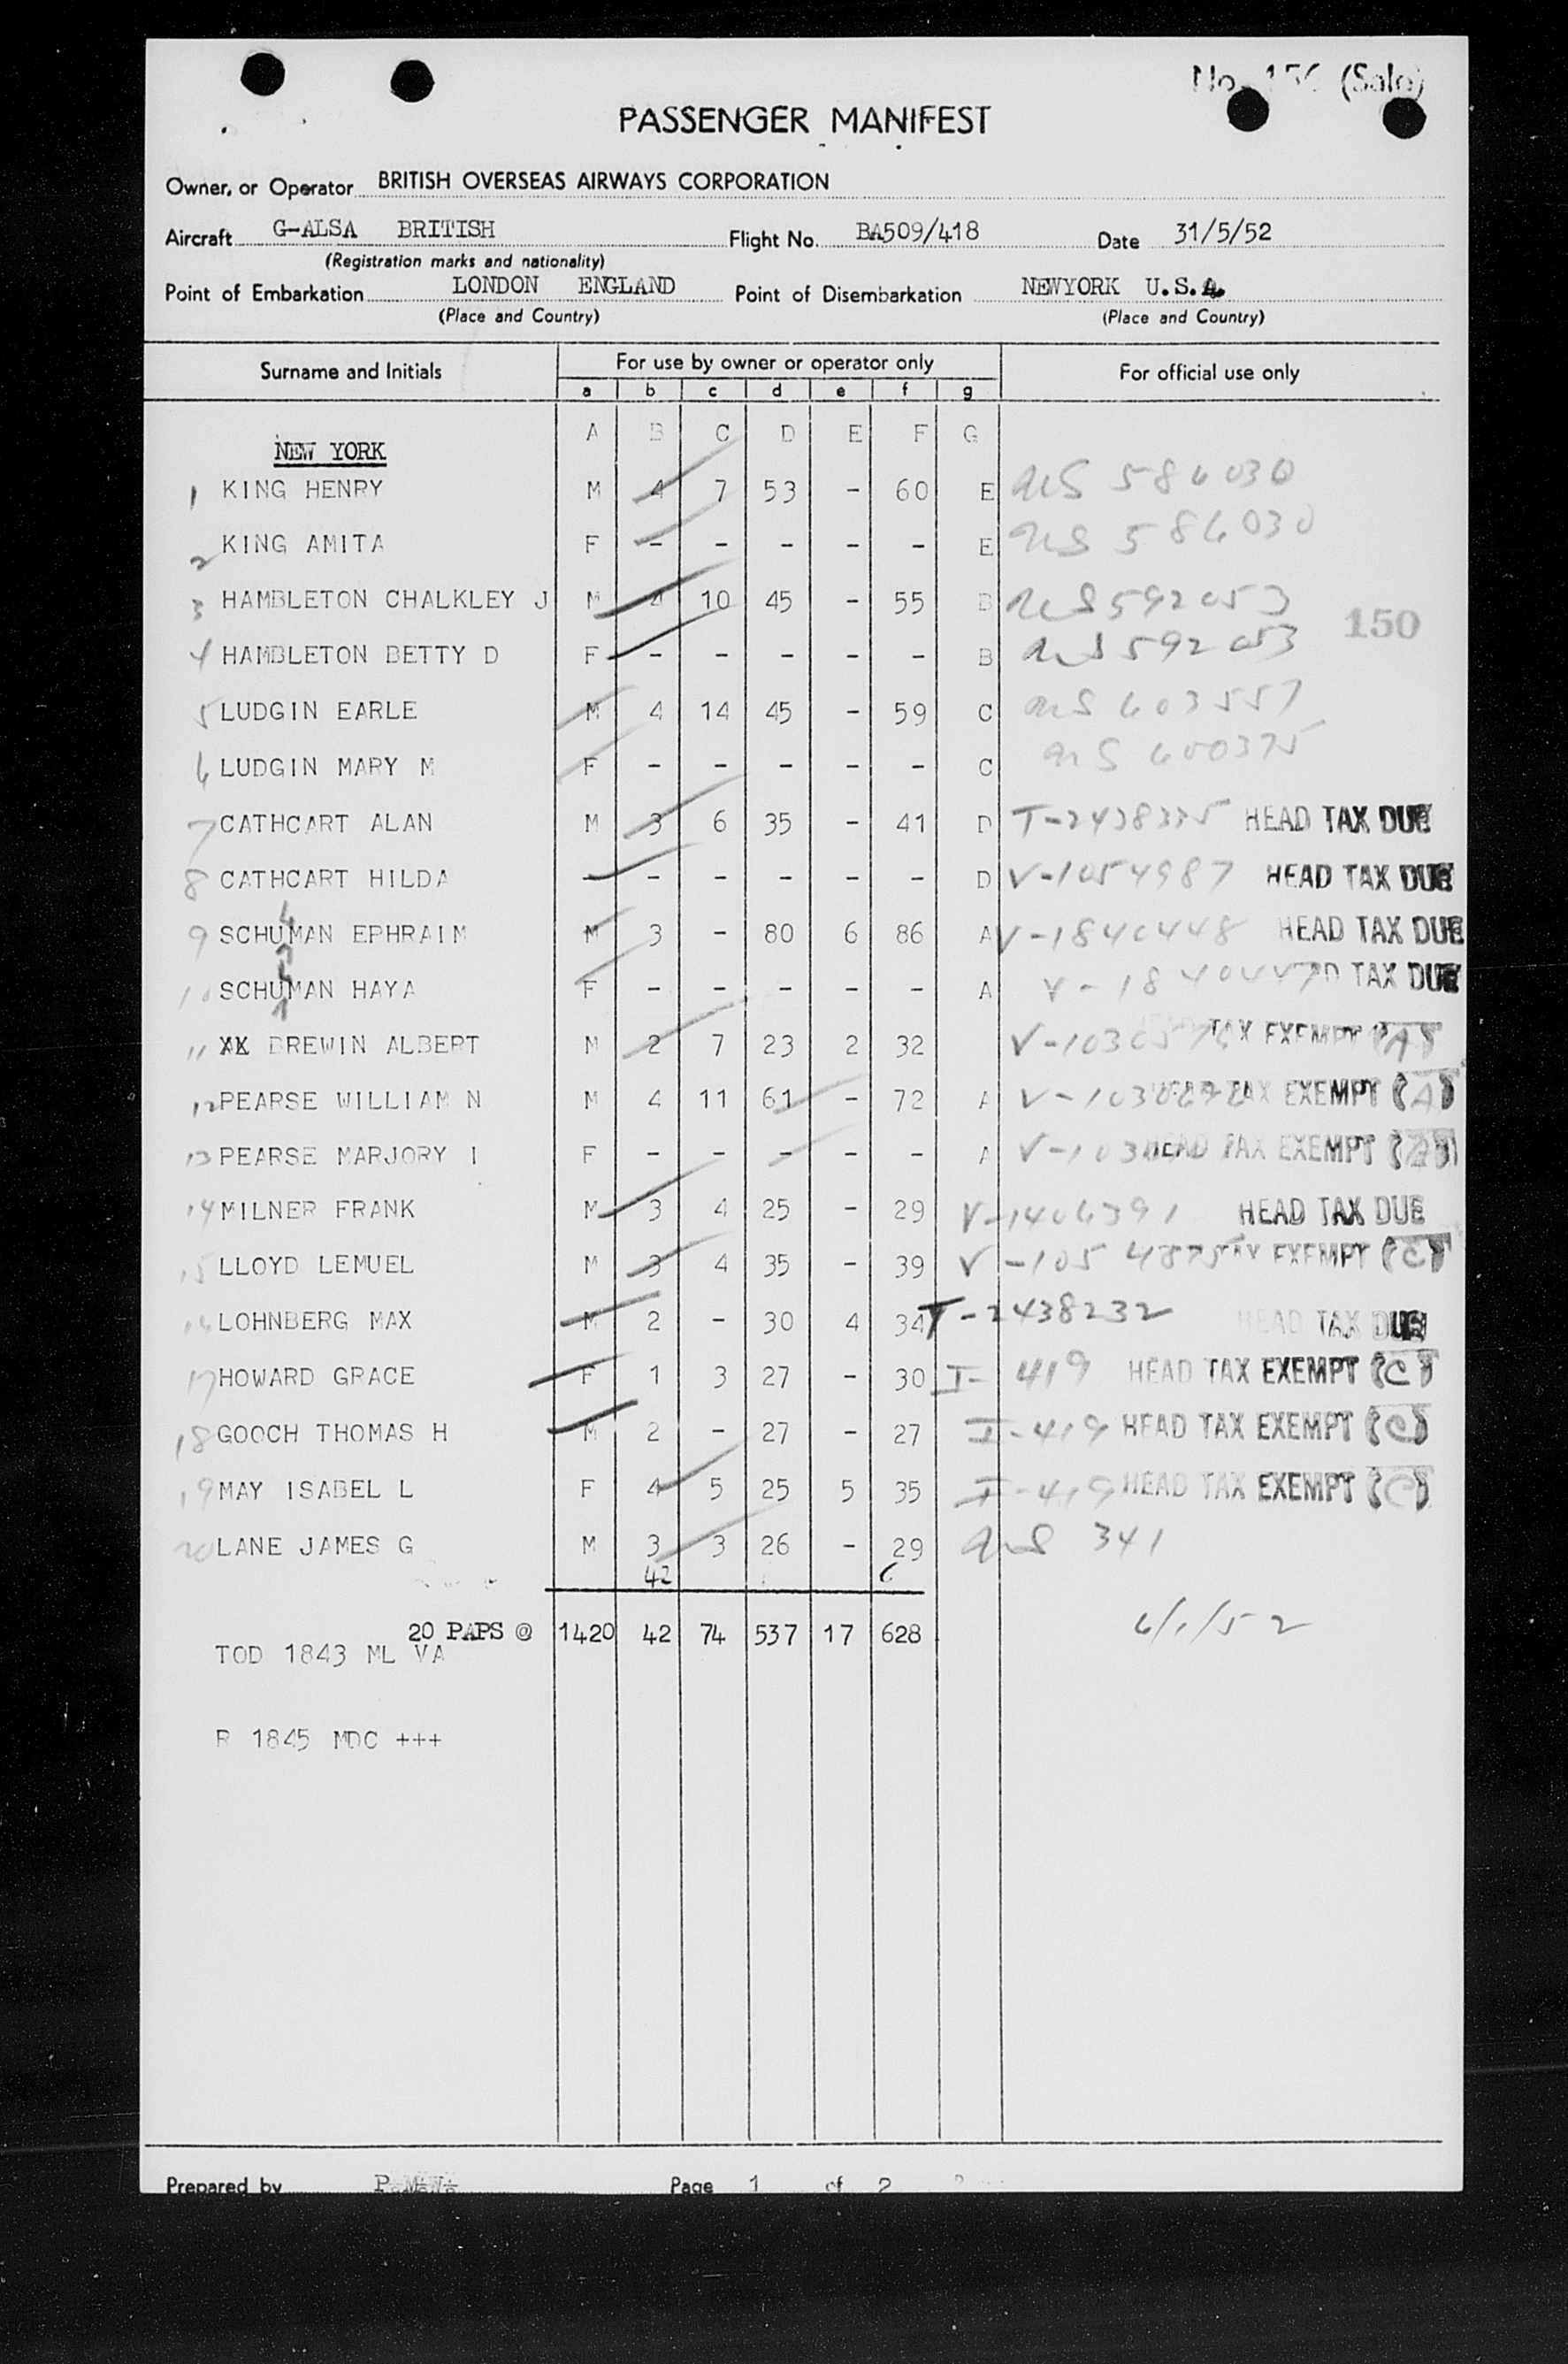 No. 156 (Sale)
PASSENGER MANIFEST
Owner, or Operator BRITISH OVERSEAS AIRWAYS CORPORATION
Aircraft G-ALSA BRITISH Flight No. BA509/418 Date 31/5/52
(Registration marks and nationality)
Point of Embarkation LONDON ENGLAND Point of Disembarkation NEWYORK U.S.A.
(Place and Country) (Place and Country)
Surname and Initials For use by owner or operator only For official use only
a b c d e f g
A B C D E F G
NEW YORK
1 KING HENRY M 4 7 53 - 60 E US 586030
2 KING AMITA F - - - - - E US 586030
3 HAMBLETON CHALKLEY J M 4 10 45 - 55 B US 592053
150
4 HAMBLETON BETTY D F - - - - - B US 592053
5 LUDGIN EARLE M 4 14 45 - 59 C US 603557
6 LUDGIN MARY M F - - - - - C US 600375
7 CATHCART ALAN M 3 6 35 - 41 D T-2438335 HEAD TAX DUE
8 CATHCART HILDA - - - - - - D V-1054987 HEAD TAX DUE
9 SCHUMAN EPHRAIM M 3 - 80 6 86 A V-1840448 HEAD TAX DUE
10 SCHUMAN HAYA F - - - - - A V-1840447 TAX DUE
11 XX DREWIN ALBERT M 2 7 23 2 32 TAX EXEMPT (A)
12 PEARSE WILLIAM N M 4 11 61 - 72 A TAX EXEMPT (A)
13 PEARSE MARJORY I F - - - - - A HEAD TAX EXEMPT (A)
14 MILNER FRANK M 3 4 25 - 29 V-1406391 HEAD TAX DUE
15 LLOYD LEMUEL M 3 4 35 - 39 V-1054875 TAX EXEMPT (C)
16 LOHNBERG MAX M 2 - 30 4 34 T-2438232 HEAD TAX DUE
17 HOWARD GRACE F 1 3 27 - 30 I-419 HEAD TAX EXEMPT (C)
18 GOOCH THOMAS H M 2 - 27 - 27 I-419 HEAD TAX EXEMPT (C)
19 MAY ISABEL L F 4 5 25 5 35 I-419 HEAD TAX EXEMPT (C)
20 LANE JAMES G M 3 3 26 - 29 US 341
42 6
20 PAPS @ 1420 42 74 537 17 628 6/1/52
TOD 1843 ML VA
R 1845 MDC +++
Prepared by Page 1 of 2